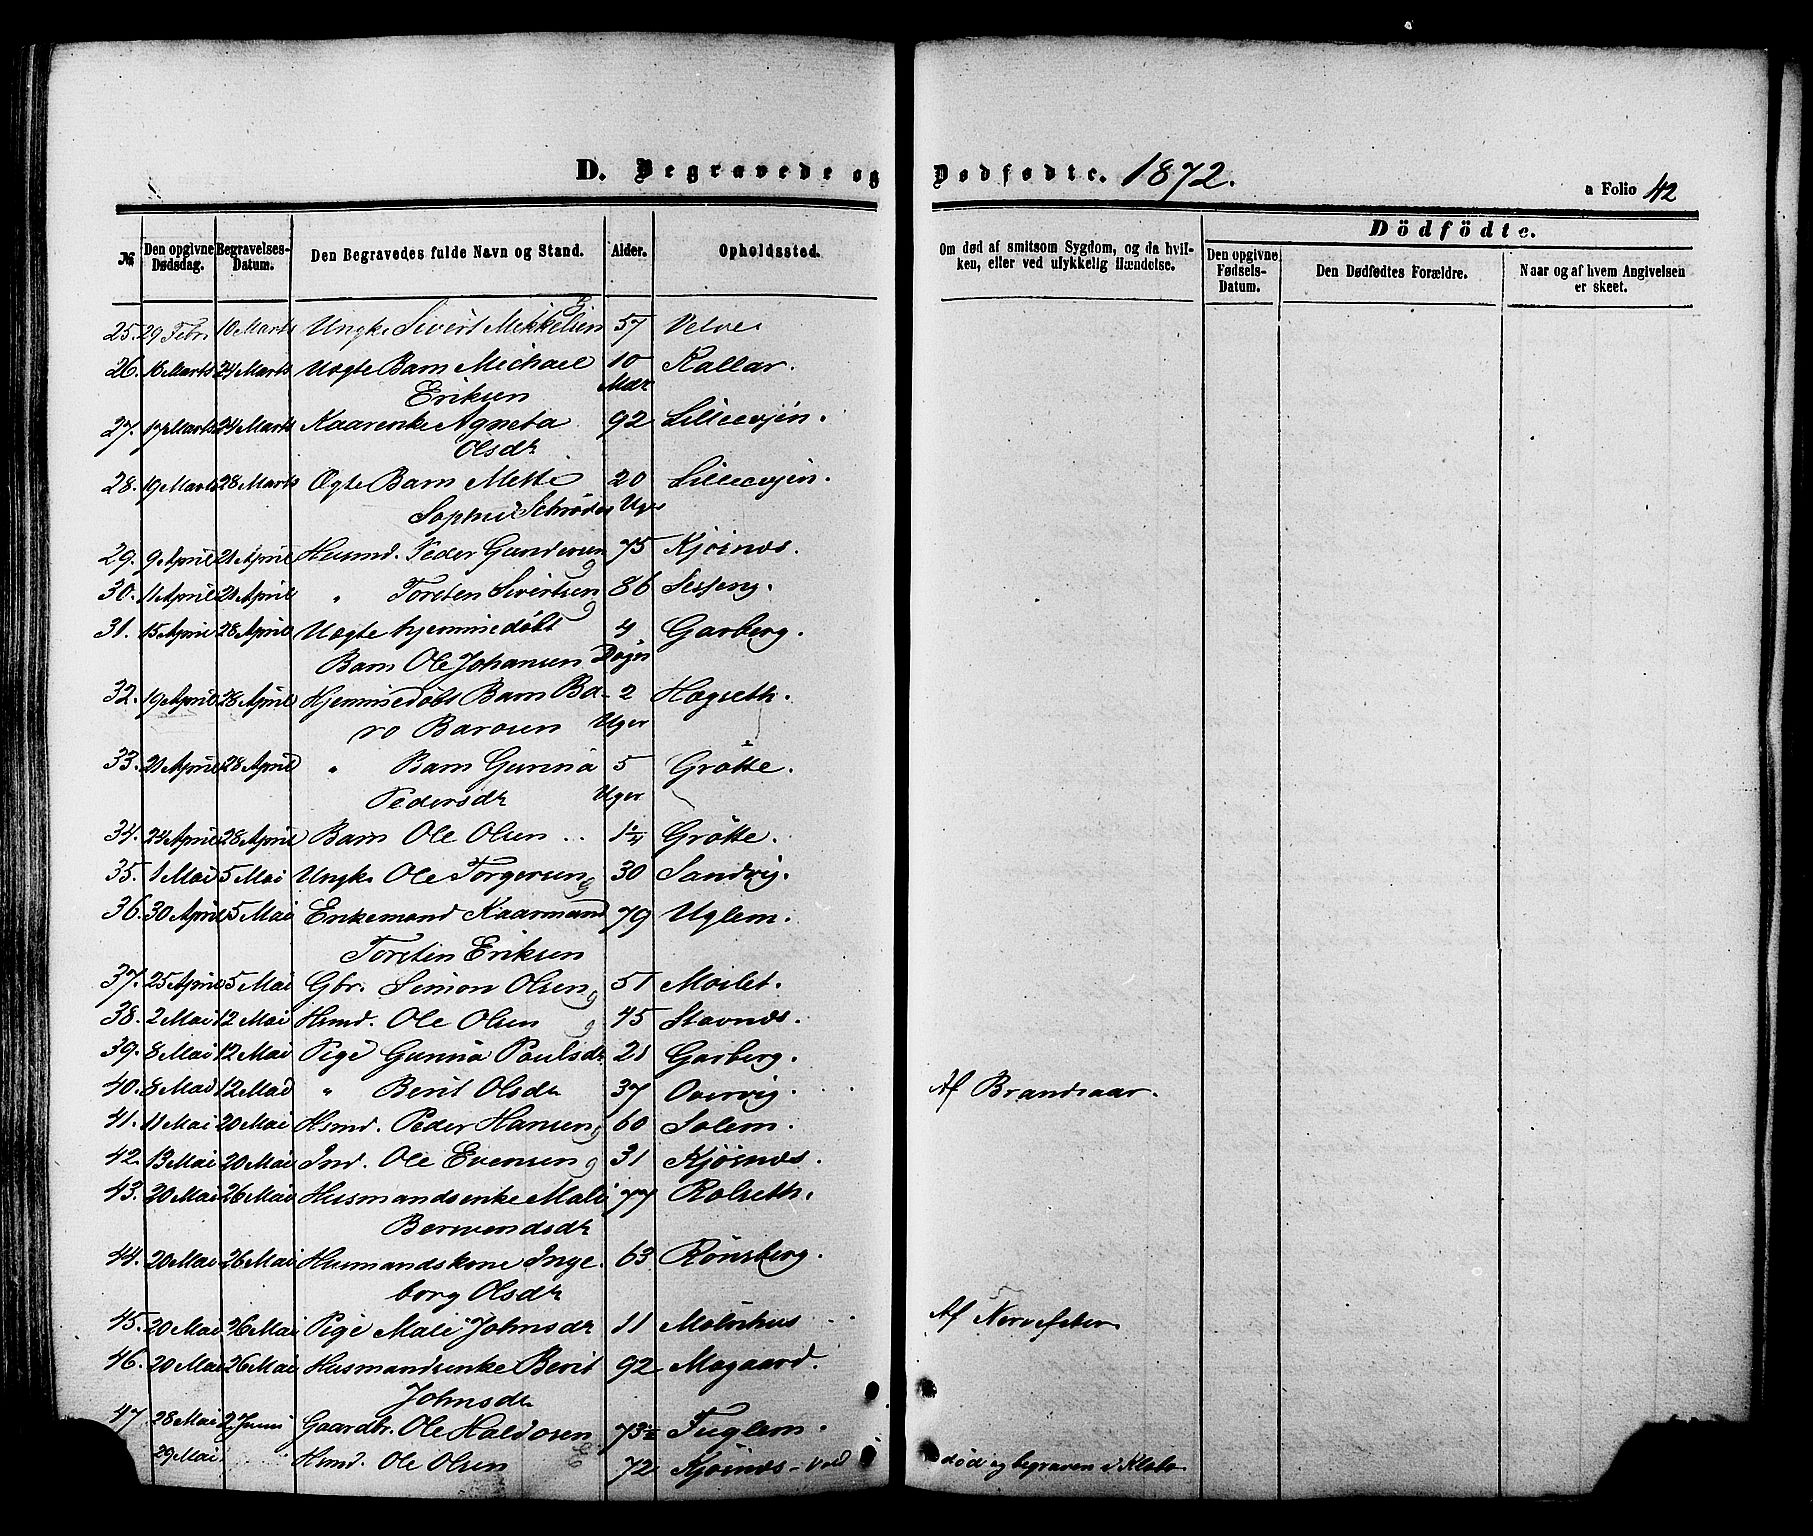 D. Begravede og Dødfødte. 1872.
a Folio 42
№ Den opgivne Dødsdag. Begravelses-Datum. Den Begravedes fulde Navn og Stand. Alder. Opholdssted. Om død af smitsom Sygdom, og da hvilken, eller ved ulykkelig Hændelse.
Dödfödte.
Den opgivne Fødsels-Datum. Den Dødfødtes Forældre. Naar og af hvem Angivelsen er skeet.
25. 29 Febr. 10 Marts Ungk. Sivert Mikkelsen 57 Velve
26. 16 Marts 24 Marts Uægte Barn Michael 10 Kallar.
Eriksen Mdr
27. 17 Marts 24 Marts Kaarenke Agneta 92 Lilleevjen.
Olsdr
28. 19 Marts 28 Marts Ægte Barn Mette 20 Lilleevjen.
Sophie Schrøder Uger
29. 9 April 21 April Husmd. Peder Gundersen 75 Kjøsnæs.
30. 11 April 21 April " Torsten Sivertsen 86 Sesseng.
31. 15 April 28 April Uægte hjemmedøbt 4 Garberg.
Barn Ole Johansen Døgn
32. 19 April 28 April Hjemmedøbt Barn Ba- 2 Hægseth.
ro Barosen Uger
33. 21 April 28 April " Barn Gunna 5 Grøtte.
Pedersdr Uger
34. 24 April 28 April Barn Ole Olsen 1¼ Grøtte.
35. 1 Mai 5 Mai Ungk. Ole Torgersen 30 Sandvig.
36. 30 April 5 Mai Enkemand Kaarmand 79 Uglem.
Torsten Eriksen
37. 25 April 5 Mai Gbr. Simon Olsen 51 Moslet.
38. 2 Mai 12 Mai Hsmd. Ole Olsen 45 Stavnæs.
39. 8 Mai 12 Mai Pige Gunna Paulsdr 21 Garberg.
40. 8 Mai 12 Mai " Berit Olsdr 37 Overvig. Af Brandsaar.
41. 11 Mai 20 Mai Hsmd. Peder Hansen 60 Solem.
42. 13 Mai 20 Mai Ind. Ole Evensen 31 Kjøsnæs.
43. 20 Mai 26 Mai Husmandsenke Mali 77 Rolseth.
Berwendsdr
44. 20 Mai 26 Mai Husmandskone Inge- 63 Rønsberg.
borg Olsdr
45. 20 Mai 26 Mai Pige Mali Johnsdr 11 Mølnhus Af Nervefeber
46. 20 Mai 26 Mai Husmandsenke Berit 92 Mogaard.
Johnsdr
47. 28 Mai 2 Juni Gaardbr. Ole Haldosen 73½ Fuglem.
29 Mai Hsmd. Ole Olsen 72 Kjøsnæs-Vad død og begraven i Klæbo